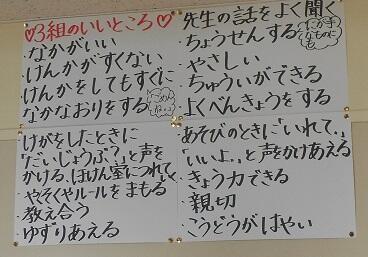 ♡3組のいいところ♡
・なかがいい
・けんかがすくない
・けんかをしてもすぐに
なかなおりをする
ごめんねっ
先生の話をよく聞く
・ちょうせんする
にが手
なものに
も
・やさしい
・ちゅういができる
・よくべんきょうをする
・けがをしたときに
「だいじょうぶ?」と声を
かける、ほけん室につれてく
・やくそくやルールをまもる
・教え合う
・ゆずりあえる
・あそびのときに「いれて。」
「いいよ。」と声をかけあえる
・きょう力できる
・親切
・こうどうがはやい